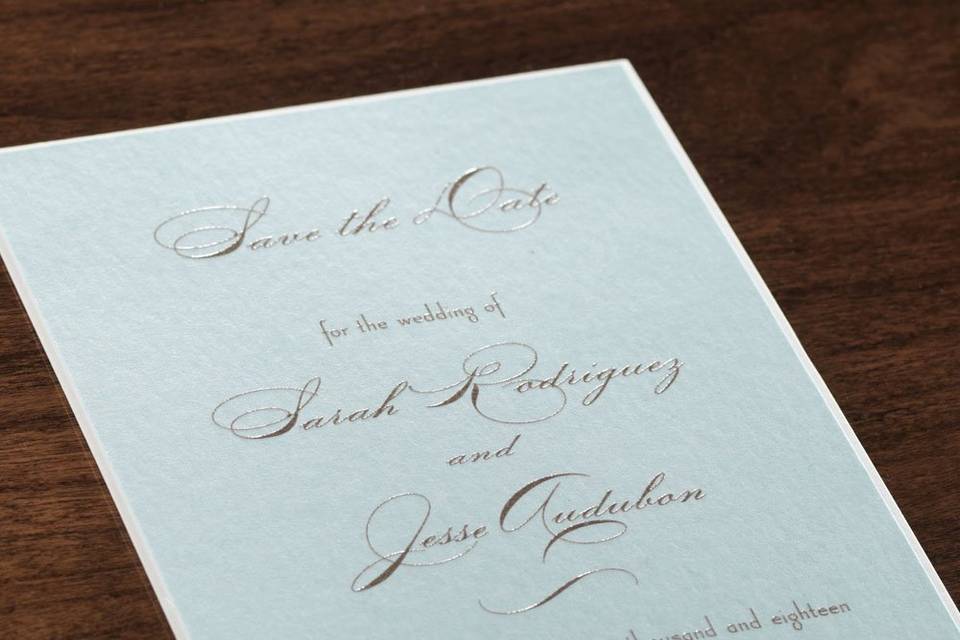 Save the Date
for the wedding of
Sarah Rodriguez
and
Jesse Audubon
and eighteen